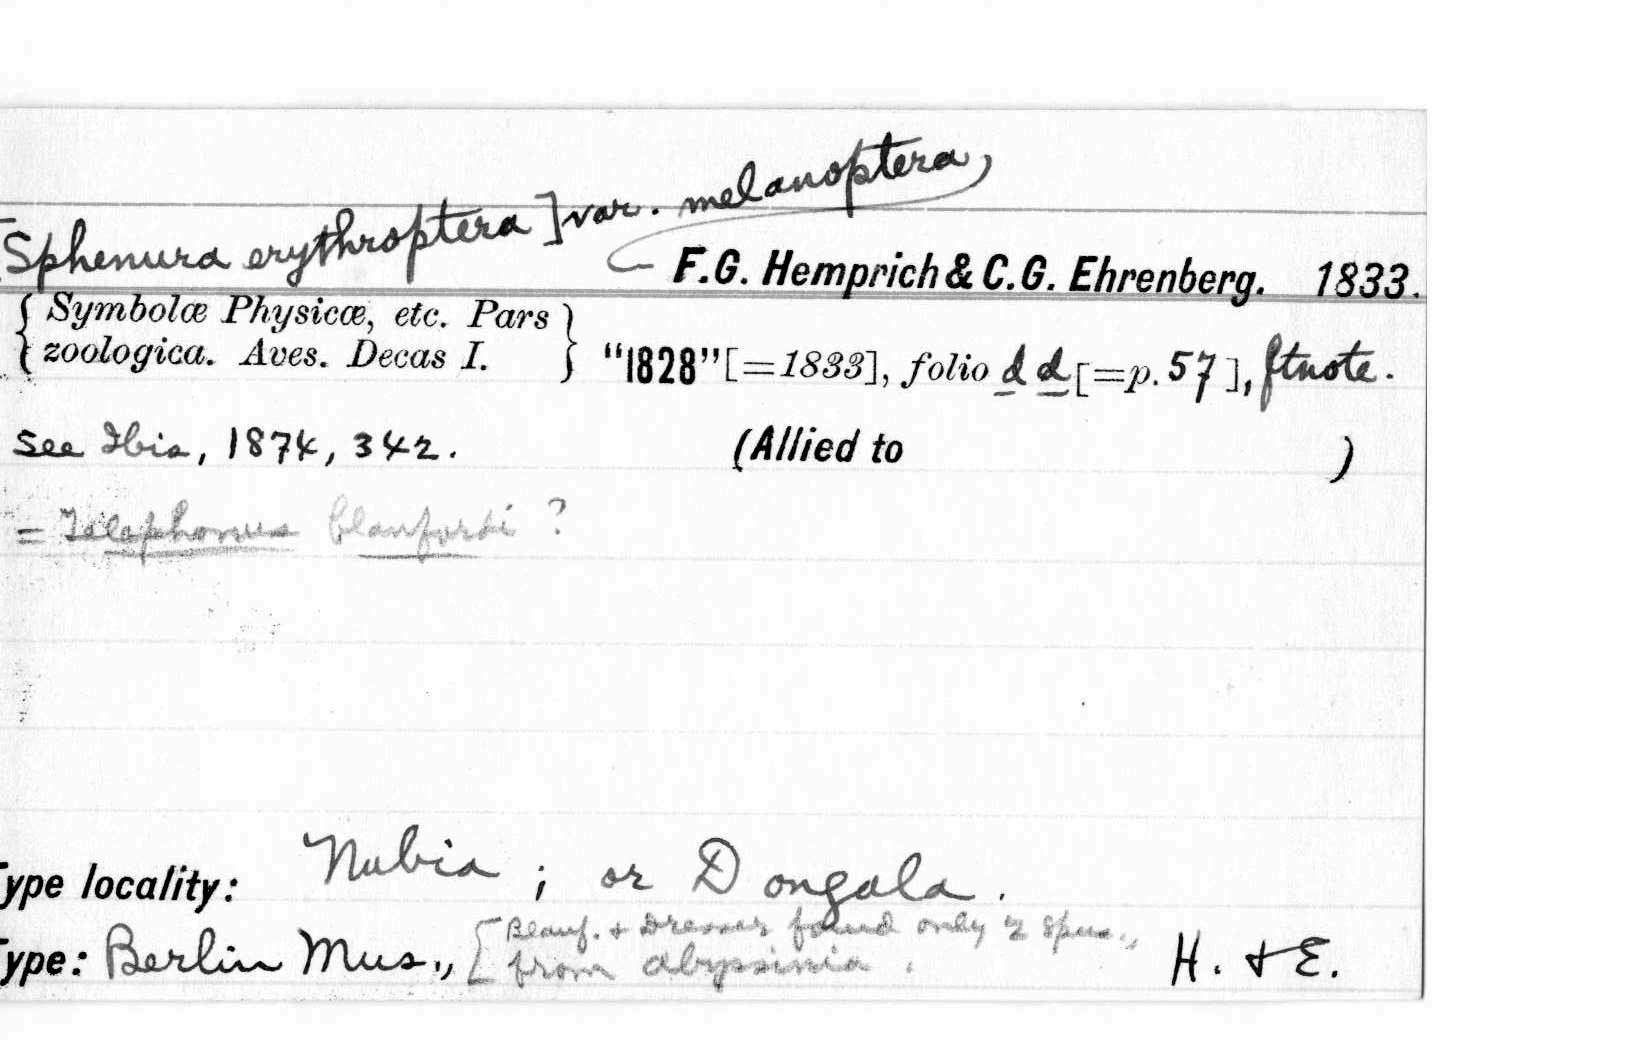 [Sphenura erythroptera] var. melanoptera,
F.G. Hemprich & C.G. Ehrenberg. 1833.
{Symbolæ Physicæ, etc. Pars
zoologica. Aves. Decas I.} "1828" [=1833], folio d d [=p. 57], ftnote.
See Ibis, 1874, 342. (Allied to )
= Telephonus blanfordi ?
Type locality: Nubia ; or Dongala.
[Blanf. + Dresser found only 2 Spms.,
Type: Berlin Mus., from Abyssinia. H. & E.